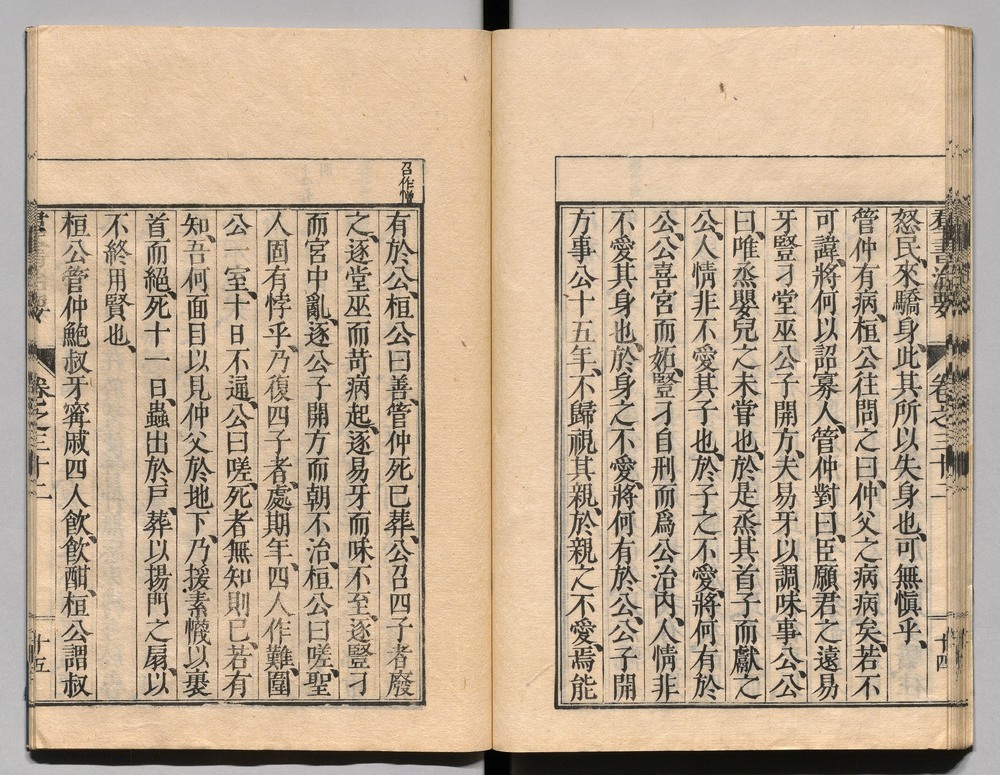 群書治要 卷之三十二 十四
怒民來驕身此其所以失身也可無慎乎
管仲有病桓公往問之曰仲父之病病矣若不
可諱將何以詔寡人管仲對曰臣願君之遠易
牙豎刁堂巫公子開方夫易牙以調味事公公
曰唯烝嬰兒之未甞也於是烝其首子而獻之
公人情非不愛其子也於子之不愛將何有於
公公喜宮而妬豎刁自刑而爲公治內人情非
不愛其身也於身之不愛將何有於公公子開
方事公十五年不歸視其親於親之不愛焉能
召作憎
有於公桓公曰善管仲死已葬公召四子者廢
之逐堂巫而苛病起逐易牙而味不至逐豎刁
而宮中亂逐公子開方而朝不治桓公曰嗟聖
人固有悖乎乃復四子者處期年四人作難圍
公一室十日不通公曰嗟死者無知則已若有
知吾何面目以見仲父於地下乃援素幭以裹
首而絕死十一日蟲出於戶葬以揚門之扇以
不終用賢也
桓公管仲鮑叔牙寗戚四人飮飮酣桓公謂叔
群書治要 卷之三十二 十五